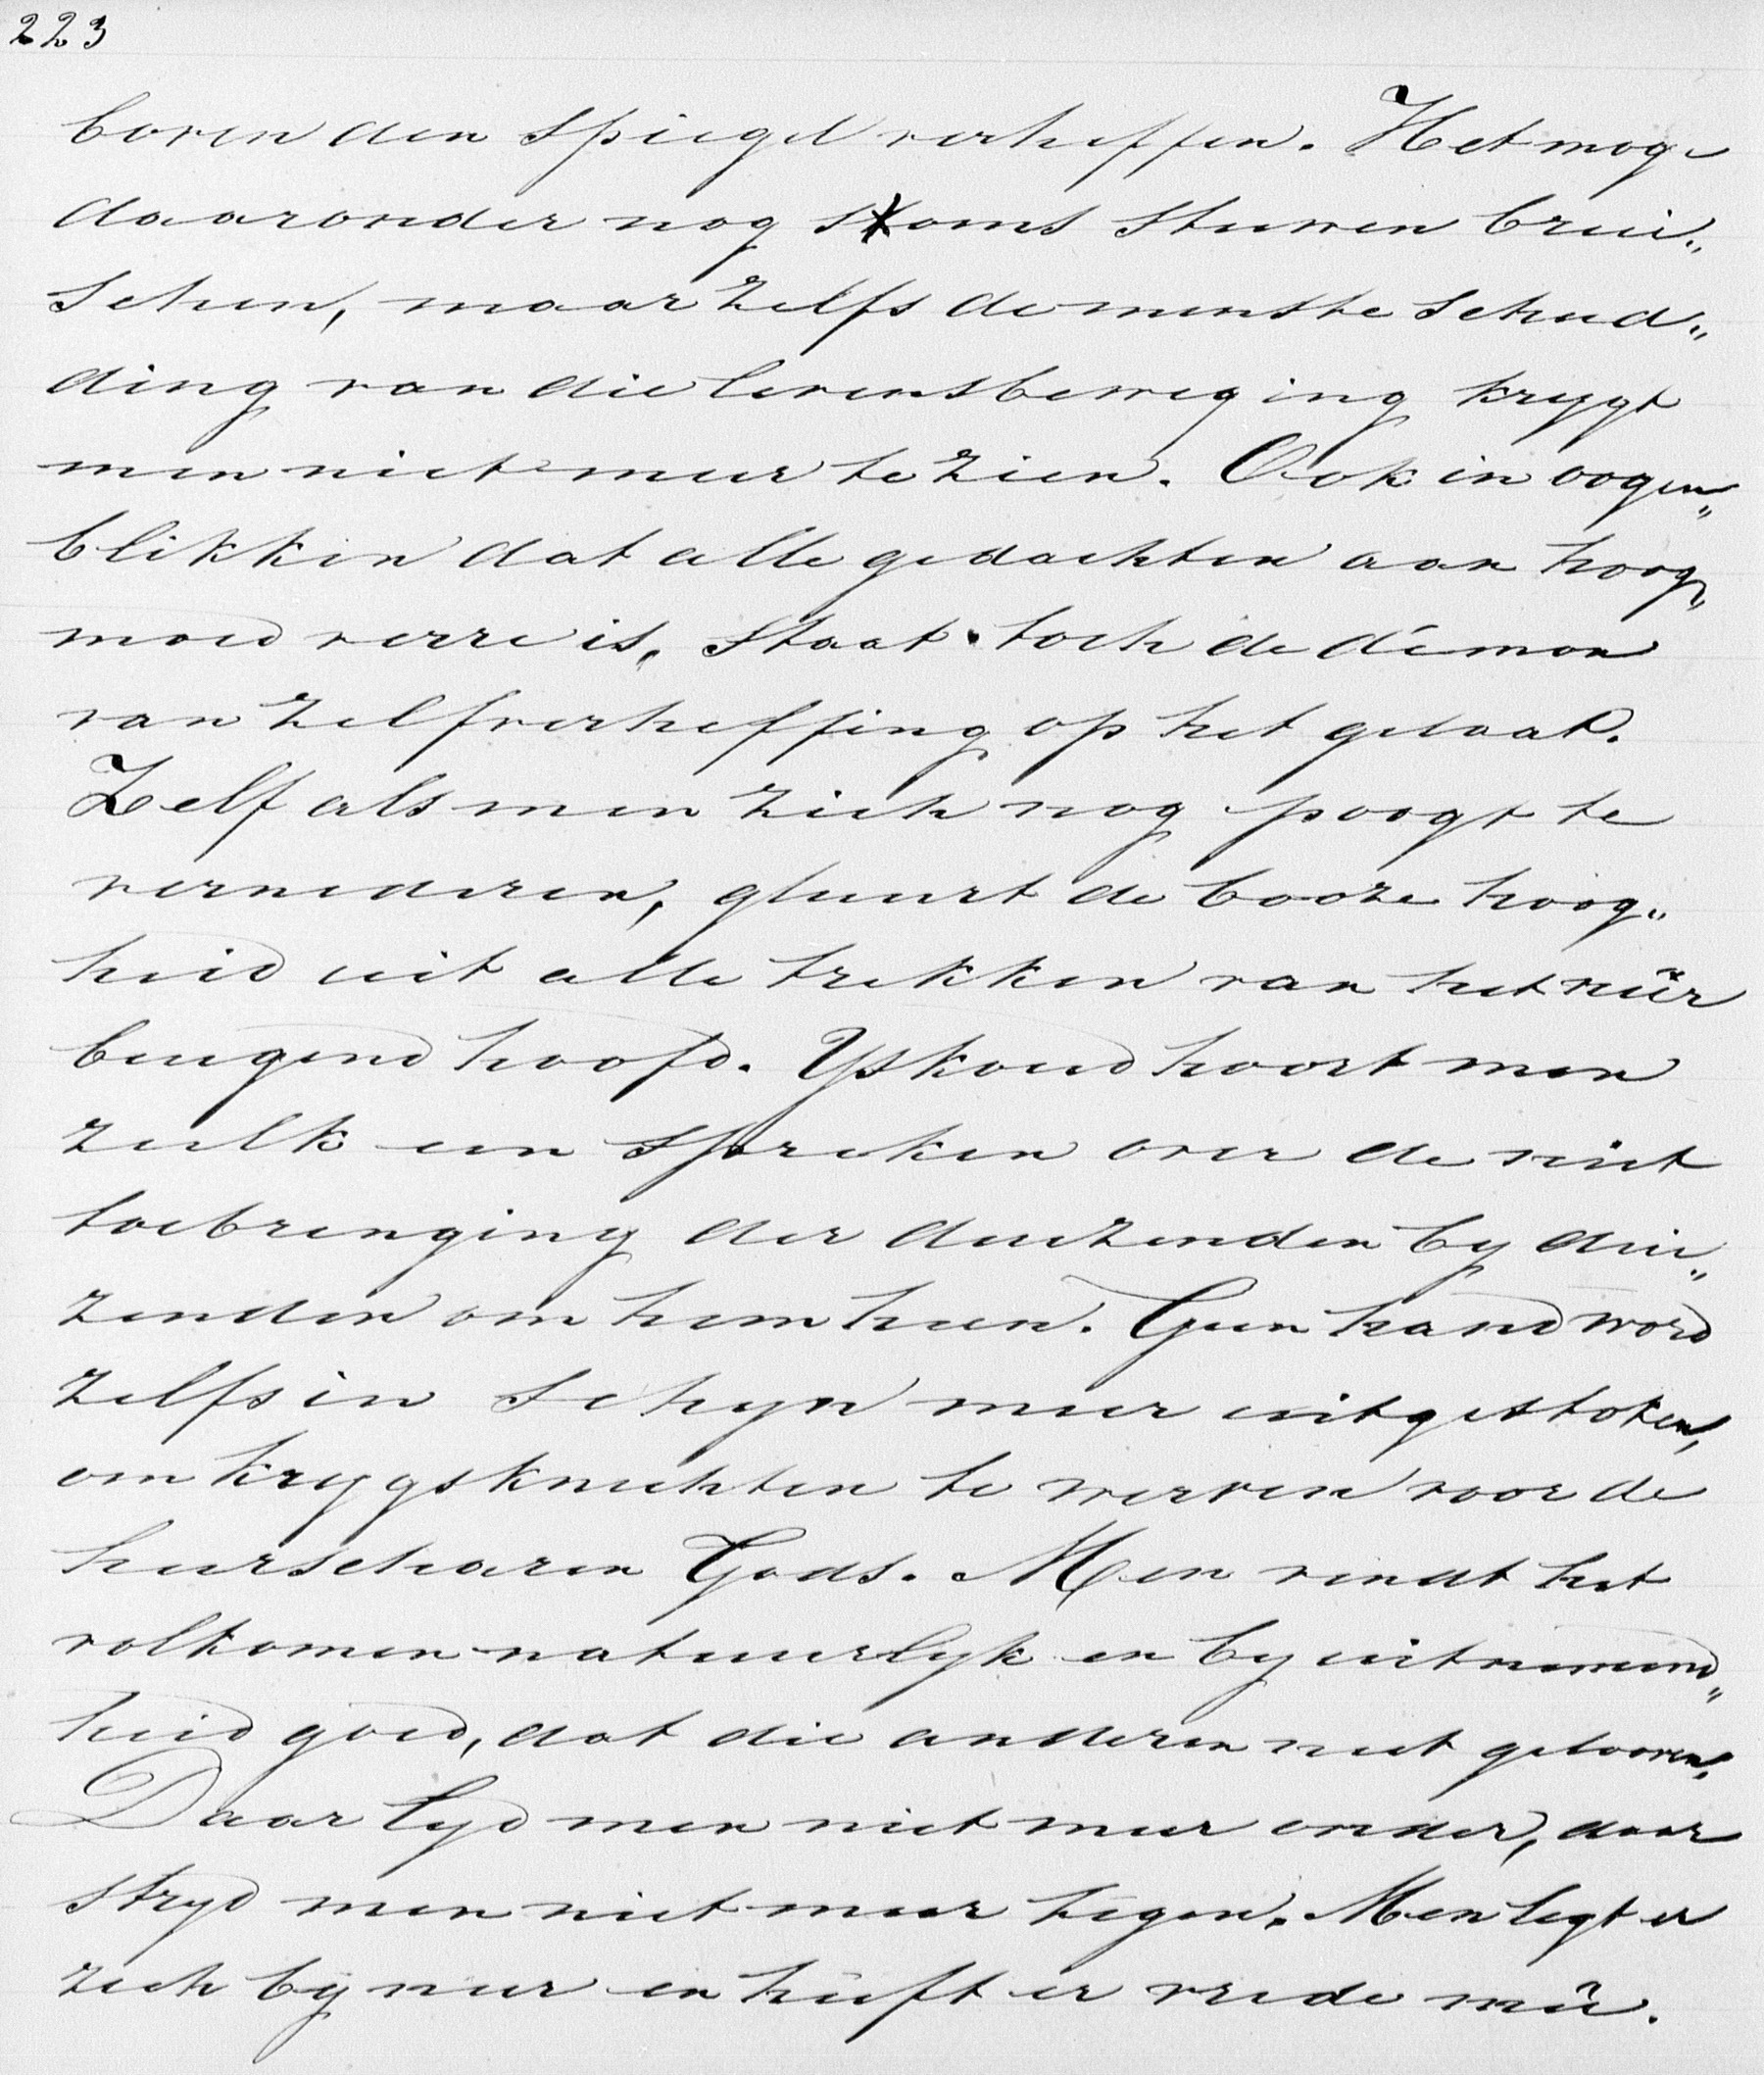 223
boven den Spiegel verheffen. Het moge
daaronder nog soms stuwen brui„
schen, maar zelfs de minste schud„
ding van die levensbeweging krygt
men niet meer te zien. Ook in oogen„
blikken dat alle gedachten aan hoog„
moed verre is, staat toch de démon
van zelfverheffing op het gelaat.
Zelf als men zich nog poogt te
vernederen, gluurt de booze hoog„
heid uit alle trekken van het neêr
buigend hoofd. Yskoud hoort men
zulk een spreken over de niet
toebrenging der duizenden by dui„
zenden om hem heen. Geen hand word
zelfs in schyn meer uitgestoken,
om krygsknechten te werven voor de
heerscharen Gods. Men vindt het
volkomen natuurlyk en by uitnemend„
heid goed, dat die anderen niet gelooven.
Daar lyd men niet meer onder, daar
stryd men niet meer tegen. Men legt er
zich by neer en heeft er vrede meê.